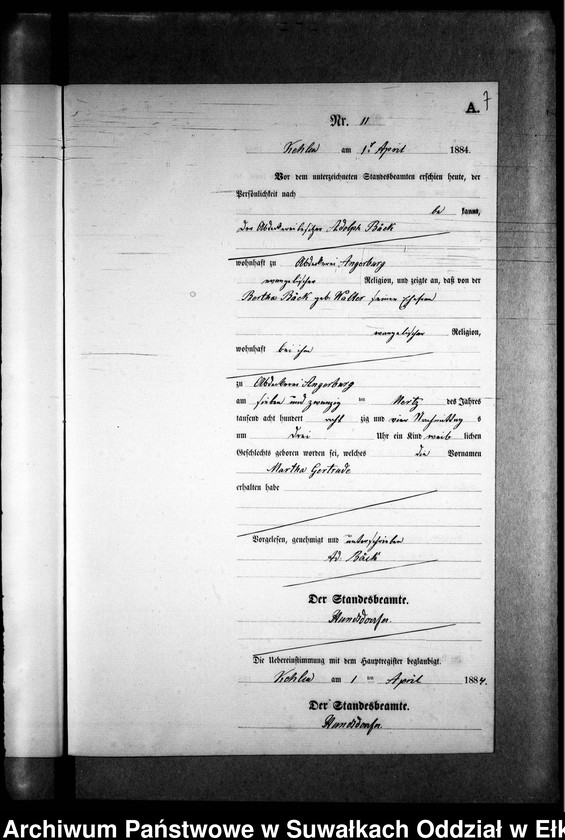 A. 7
Nr. 11
Kehlen am 1t April 1884.
Vor dem unterzeichneten Standesbeamten erschien heute, der
Persönlichkeit nach
be kannt,
der Abdeckereibesitzer Adolph Bäck
wohnhaft zu Abdeckerei Angerburg
evangelischer Religion, und zeigte an, daß von der
Bertha Bäck geb. Walter seiner Ehefrau
evangelischer Religion,
wohnhaft bei ihm
zu Abdeckerei Angerburg
am sieben und zwanzig ten Mertz des Jahres
tausend acht hundert acht zig und vier Nachmittag s
um drei Uhr ein Kind weib lichen
Geschlechts geboren worden sei, welches die Vornamen
Martha Gertrude
erhalten habe
Vorgelesen, genehmigt und unterschrieben
Ad. Bäck
Der Standesbeamte.
Die Uebereinstimmung mit dem Hauptregister beglaubigt.
Kehlen am 1 ten April 1884.
Der Standesbeamte.
Archiwum Państwowe w Suwałkach Oddział w Ełk